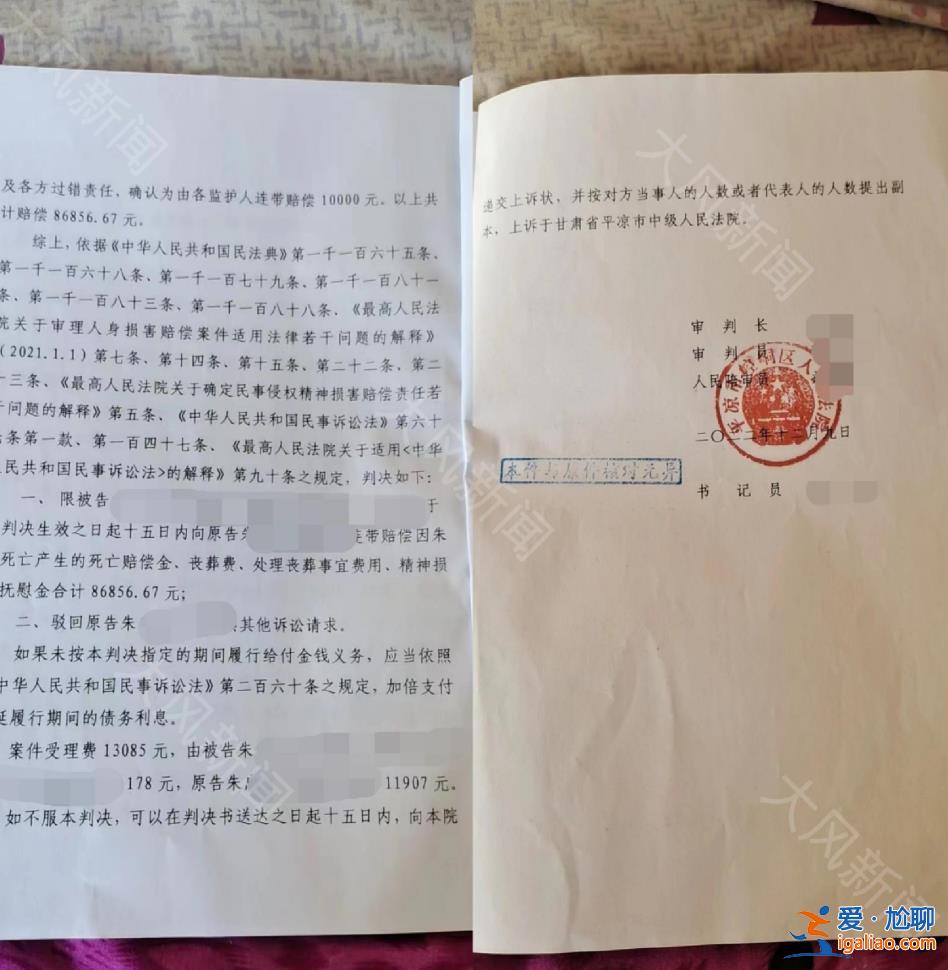 及各方过错责任，确认为由各监护人连带赔偿 10000 元。以上共
计赔偿 86856.67 元。
综上，依据《中华人民共和国民法典》第一千一百六十五条、
第一千一百六十八条、第一千一百七十九条、第一千一百八十一
条、第一千一百八十三条、第一千一百八十八条、《最高人民法
院关于审理人身损害赔偿案件适用法律若干问题的解释》
（2021.1.1）第七条、第十四条、第十五条、第二十二条、第二
十三条、《最高人民法院关于确定民事侵权精神损害赔偿责任若
干问题的解释》第五条、《中华人民共和国民事诉讼法》第六十
条第一款、第一百四十七条、《最高人民法院关于适用<中华
人民共和国民事诉讼法>的解释》第九十条之规定，判决如下：
一、限被告 于
判决生效之日起十五日内向原告朱 连带赔偿因朱
死亡产生的死亡赔偿金、丧葬费、处理丧葬事宜费用、精神损
抚慰金合计 86856.67 元；
二、驳回原告朱 其他诉讼请求。
如果未按本判决指定的期间履行给付金钱义务，应当依照
中华人民共和国民事诉讼法》第二百六十条之规定，加倍支付
延履行期间的债务利息。
案件受理费 13085 元，由被告朱
178 元，原告朱 11907 元。
如不服本判决，可以在判决书送达之日起十五日内，向本院
递交上诉状，并按对方当事人的人数或者代表人的人数提出副
本，上诉于甘肃省平凉市中级人民法院。
审 判 长
审 判 员
人民陪审员
二〇二二年十二月九日
本件与原件核对无异
书 记 员
大风新闻
大风新闻
大风新闻
大风新闻
大风新闻
大风新闻
爱·尬聊
igaliao.com